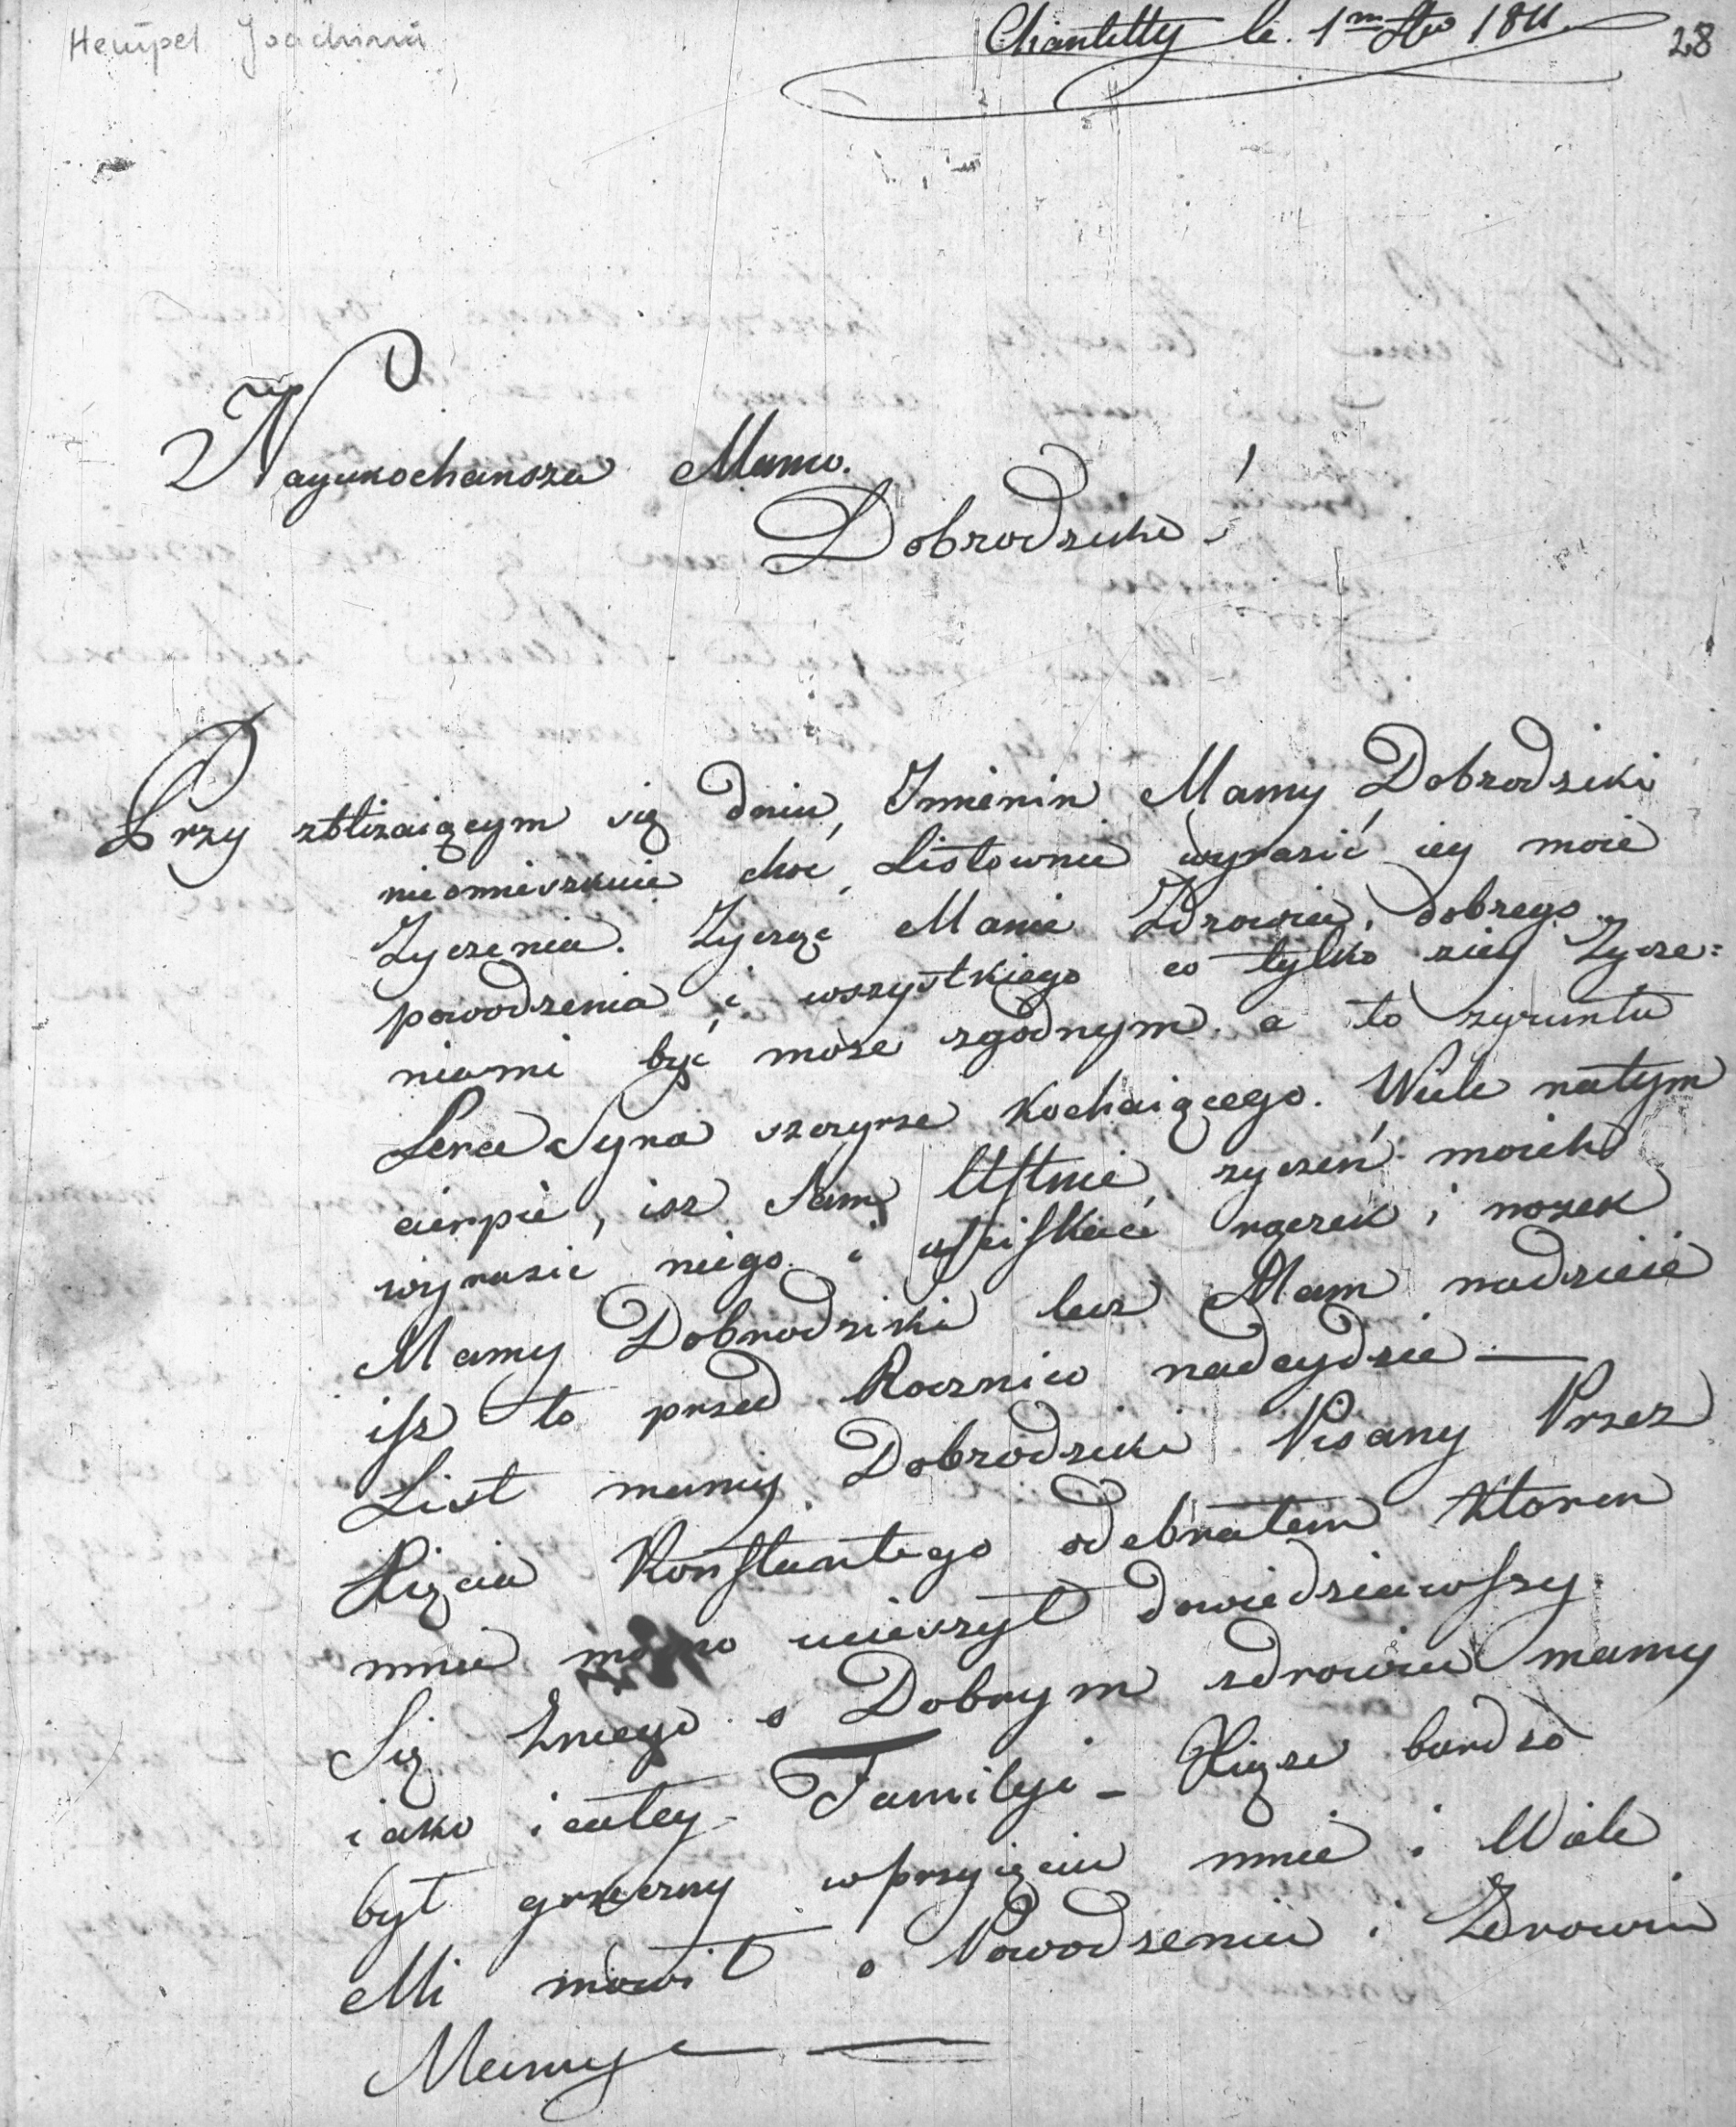 Hempel Joachim
Chantilly le. 1m 1811. 28
Nayukochansza Mamo.
Dobrodziko !
Przy zblizaiącym się dniu, Imienin Mamy Dobrodziki
nieomieszkuie choc Listownie wyrazić iey moie
Zyczenia. Zycząc Mamie Zdrowia, dobrego
powodzenia i wszystkiego co tylko ziey Zycze=
niami być może zgodnym. a to zgruntu
Serca Syna szczyrze kochaiącego. Wiele natym
cierpie, isz Sam Ustnie zyczeń moich
wyrazic niego i usciskać rączek i nozek
Mamy Dobrodziki lecz Mam nadzieie
isz to przed Rocznico nadeydzie —
List mamy Dobrodziki Pisany Przez
Xięcia Konstantego odebrałem ktoren
mnie ucieszył dowiedziawszy
Się Zniego o Dobrym zdrowiu mamy
iako i całey Familyi - Xiąze bardzo
był grzeczny wprzyięciu mnie i Wiele
Mi mówił o Powodzeniu i Zdrowiu
Mamy —